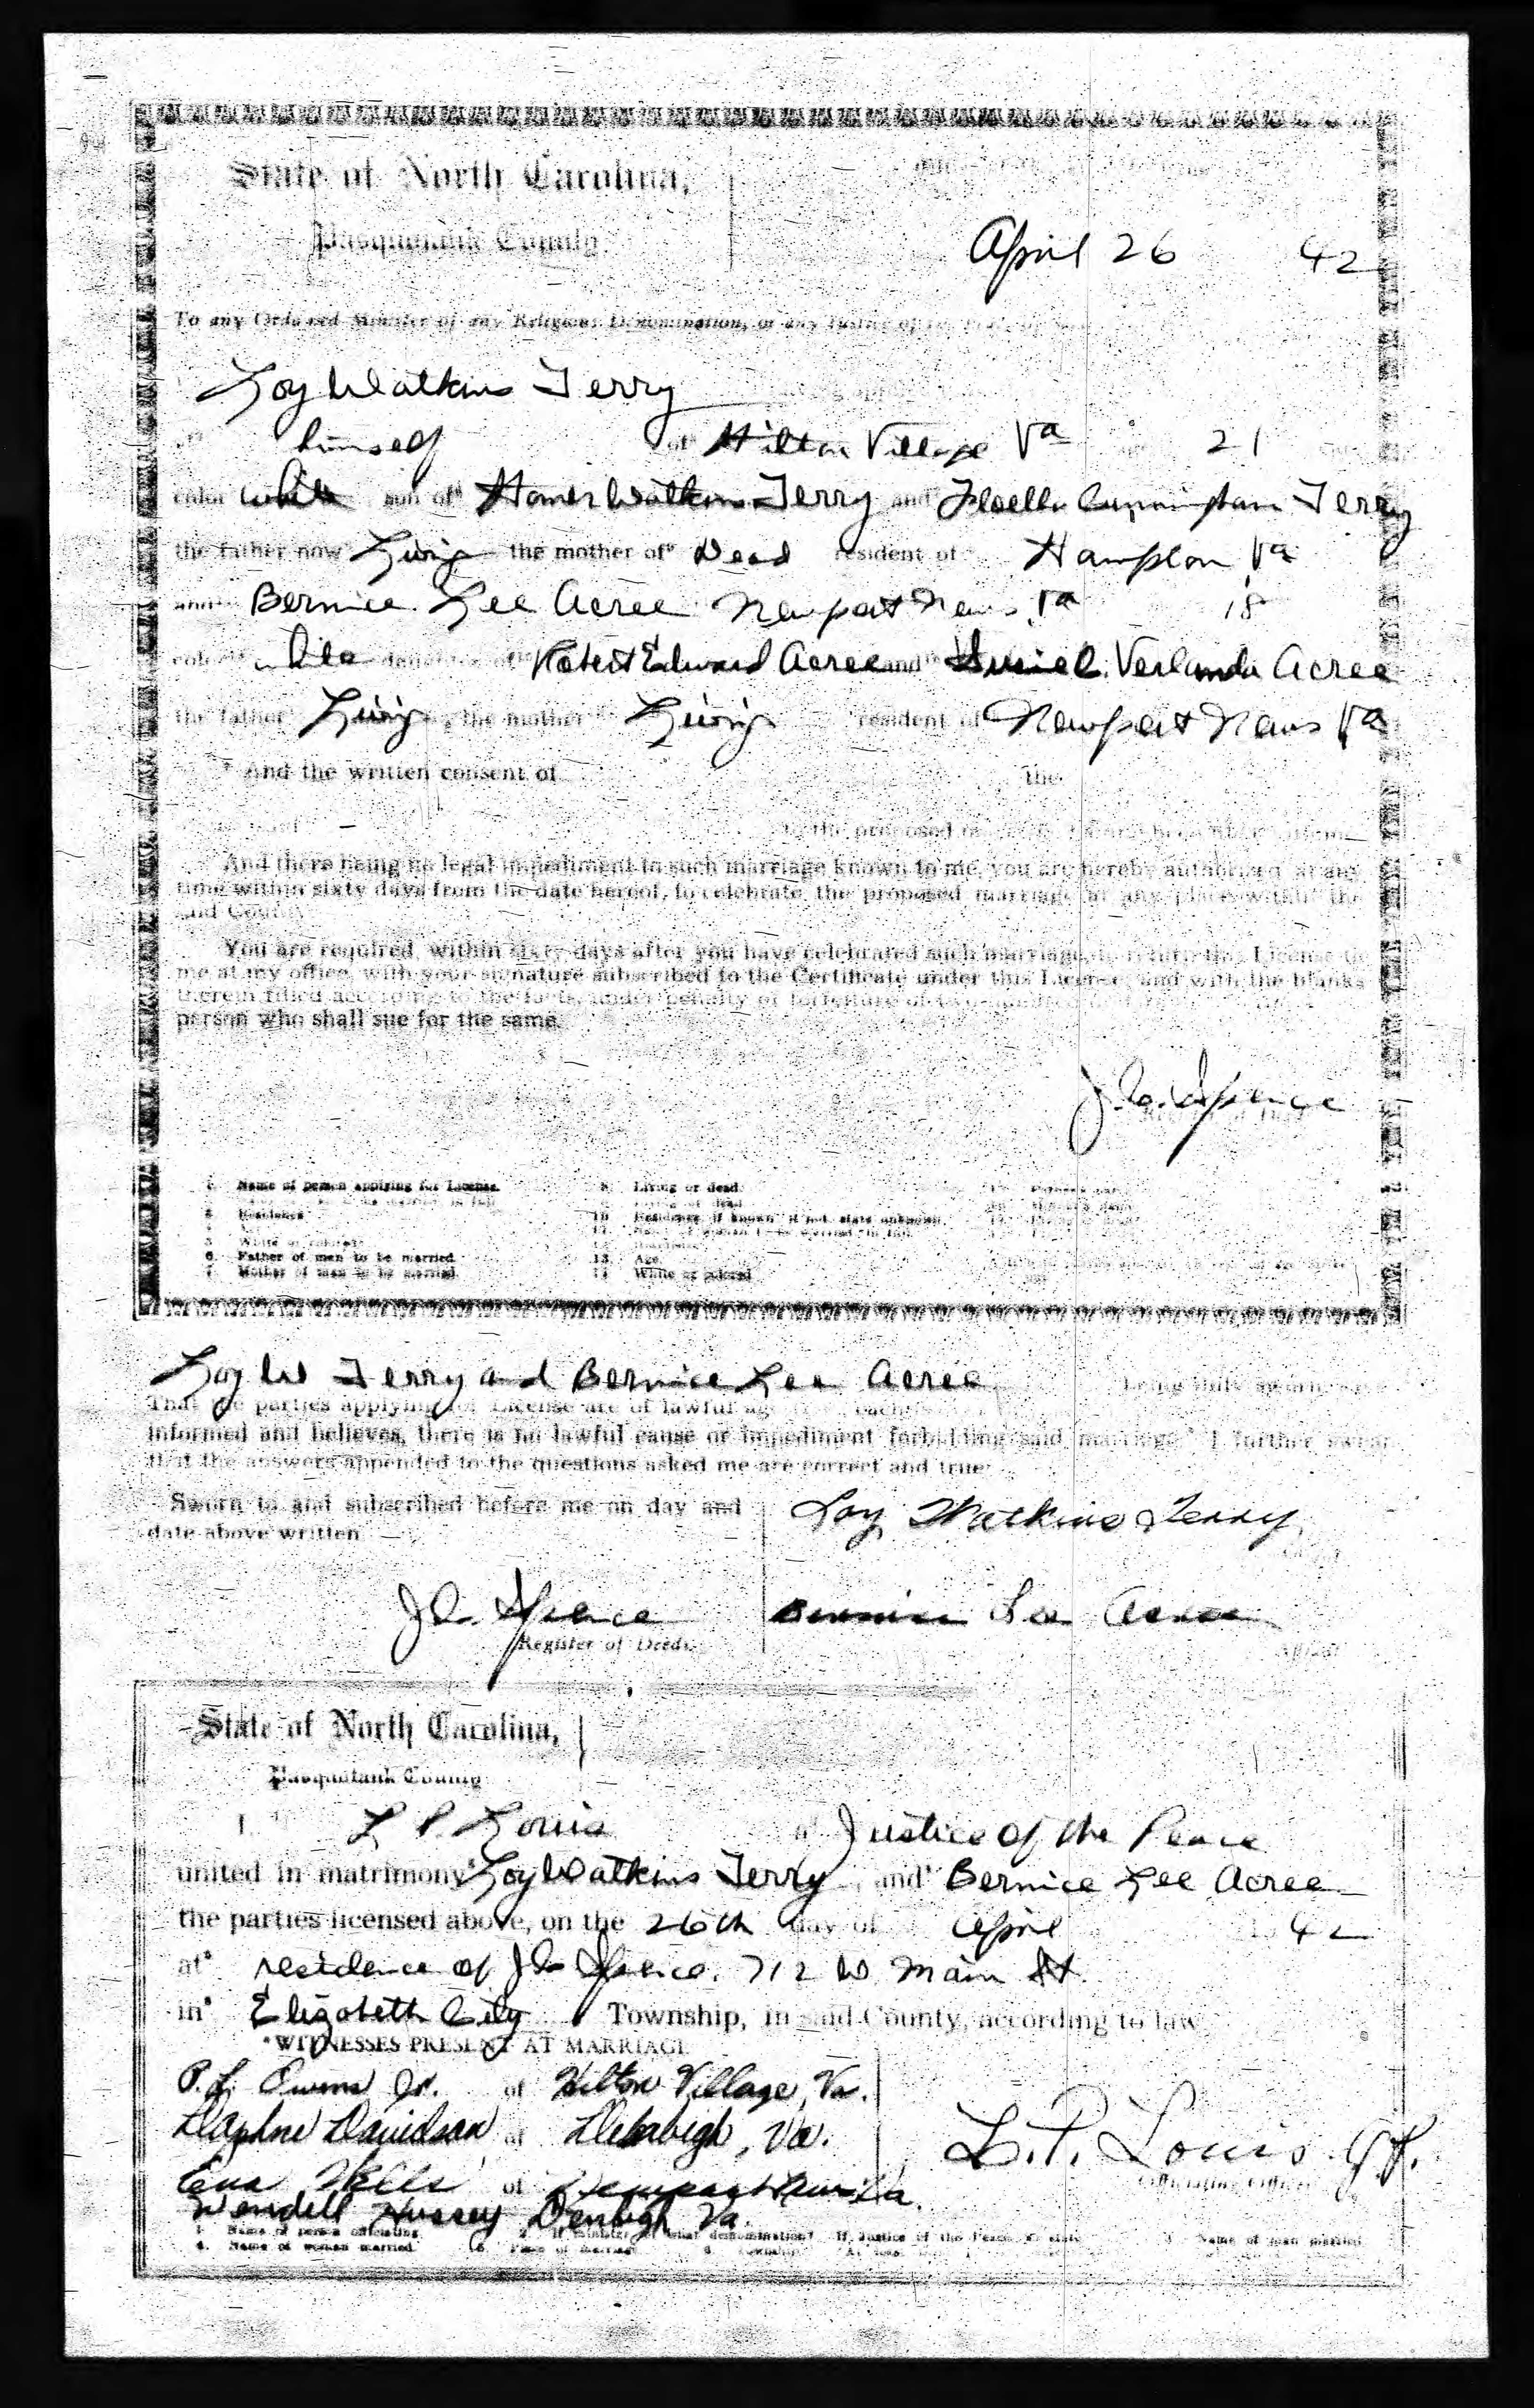 State of North Carolina,
Pasquotank County
April 26 42
To any Ordained Minister of any Religious Denomination, or any Justice of the
Loy Watkins Terry
himself of Hilton Village Va 21
color white son of Homer Watkins Terry and Floella Cunningham Terry
the father now Living the mother Dead resident of Hampton Va
and Bernice Lee Acree Newport News Va 18
color white daughter of Robert Edward Acree and Verlanda Acree
the father Living, the mother Living resident of Newport News Va
And the written consent of the
to the proposed
And there being no legal impediment to such marriage known to me, you are hereby authorized, at any
time within sixty days from the date hereof, to celebrate the proposed marriage at any place within the
said County.
You are required, within sixty days after you have celebrated such marriage, to return this License to
me at my office, with your signature subscribed to the Certificate under this License, and with the blanks
therein filled according to the facts, under penalty of forfeiture of two hundred
person who shall sue for the same.
J.C. Spence
Name of person applying for License. Living or dead.
Residence Residence, if known, if not state unknown
White or colored
6. Father of man to be married. 13. Age.
7. Mother of man to be married. 14 White or colored
Loy W Terry and Bernice Lee Acree being duly sworn, says
That the parties applying for License are of lawful age
informed and believes, there is no lawful cause or impediment forbidding said marriage. I further swear
that the answers appended to the questions asked me are correct and true.
Sworn to and subscribed before me on day and
date above written
Loy Watkins Terry
J.C. Spence Bernice Lee Acree
Register of Deeds.
State of North Carolina,
Pasquotank County
I L P Louis a Justice of the Peace
united in matrimony Loy Watkins Terry and Bernice Lee Acree
the parties licensed above, on the 26th day of April 42
at residence of J C Spence. 712 W Main St.
in Elizabeth City Township, in said County, according to law
WITNESSES PRESENT AT MARRIAGE
P. L. Owens Jr. of Hilton Village, Va.
Daphne Davidson of Denbigh, Va.
L. P. Louis J.P.
Officiating Officer
of Newport News Va.
Wendell Hussey Denbigh Va.
1. Name of person officiating. If minister of what denomination? If Justice of the Peace, so state. Name of man married
4. Name of woman married. Place of marriage Township